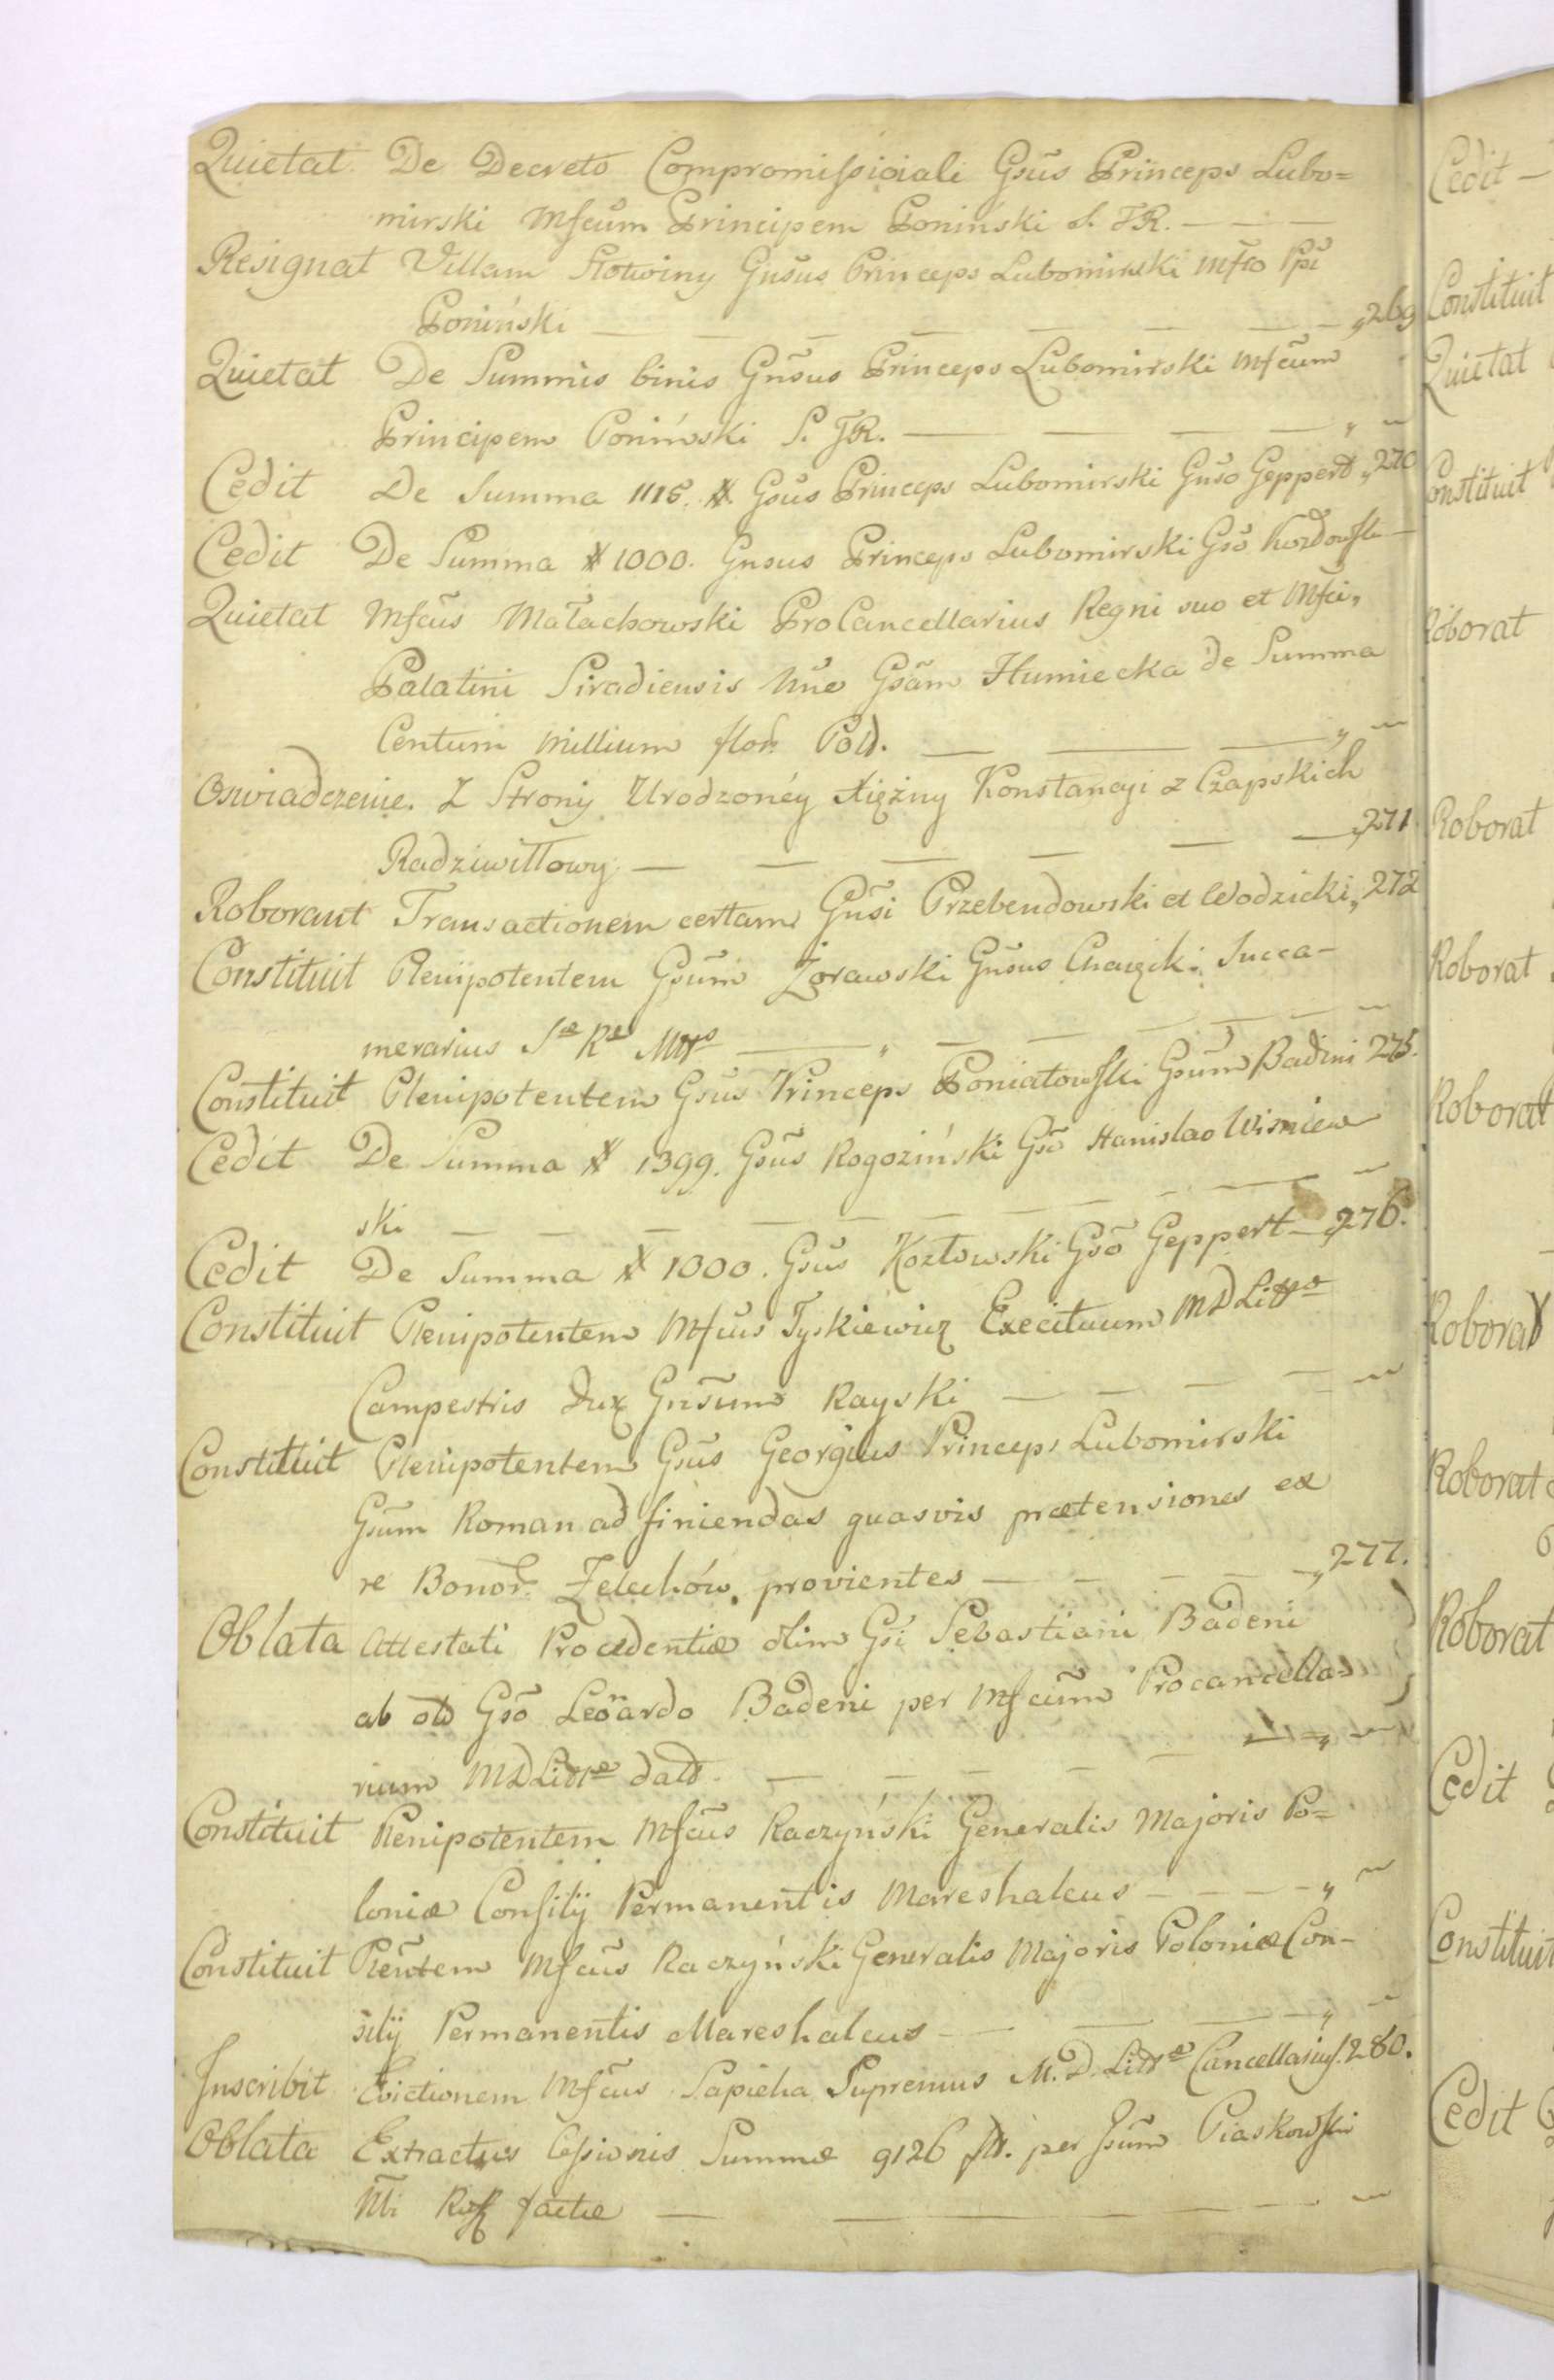 Quietat De Decreto Compromissiciali Gsus Princeps Lubo=
mirski Mfcum Principem Poniński S. TR. — — —
Resignat Villam Słotwiny Gnsus Princeps Lubomirski Mfco Ppi
Poniński — — — — — — „269
Quietat De Summis binis Gnsus Princeps Lubomirski Mfcum
Principem Poniński S. TR. — — — — „ ~
Cedit De Summa 1115. # Gsus Princeps Lubomirski Gnso Geppert „270
Cedit De Summa # 1000. Gnsus Princeps Lubomirski Gso —
Quietat Mfcus Małachowski ProCancellarius Regni suo et Mfci„
Palatini Siradiensis Nne Gsam Humiecka de Summa
Centum Millium flor. Pold. — — — „ ~
Oswiadczenie. Z Strony Urodzonéy Xiężny Konstancyi z Czapskich
Radziwiłłowy — — — — — — „271
Roborant Transactionem certam Gnsi Przebendowski et Wodzicki „272
Constituit Plenipotentem Gsum Żorawski Gnsus Succa-
merarius Sæ Ræ Mttis — „ — — — — ~
Constituit Plenipotentem Gsus Princeps Poniatowski Gsum Badeni 275.
Cedit De Summa # 1399. Gsus Rogoziński Gso Stanislao Wisniew
ski — — — — — — — — — ~
Cedit De Summa # 1000. Gsus Kozłowski Gso Geppert — „276.
Constituit Plenipotentem Mfcus Tyskiewicz Execituum MDLittæ
Campestris Dux Gnsum Rayski — — — — ~
Constituit Plenipotentem Gsus Georgius Princeps Lubomirski
Gsum Roman ad finiendas quasvis prætensiones ex
re Bonor. Żelechów. provientes — — — — „277.
Oblata Attestati Procedentiæ olim Gsi Sebastiani Badeni
ab old Gso Leonardo Badeni per Mfcum Procancella=
rium MDLittæ datd. — — — — — — „ ~
Constituit Plenipotentem Mfcus Raczyński Generalis Majoris Po=
loniæ Consilij Permanentis Mareshalcus — — — „ ~
Constituit Plentem Mfcus Raczyński Generalis Majoris Poloniæ Con-
silij Permanentis Mareshalcus — — — — „ ~
Inscribit Evictionem Mfcus Sapieha Supremus M. D. Littæ Cancellarius. 280.
Oblata Extractus Cessionis Summæ 9126 fld. per Gsum Piaskowski
factæ — — — — — ~
Cedit —
Constituit
Quietat
Constituit
Roborat
Roborat
Roborat
Roborat
Roborat
Roborat
Roborat
Cedit
Constituit
Cedit